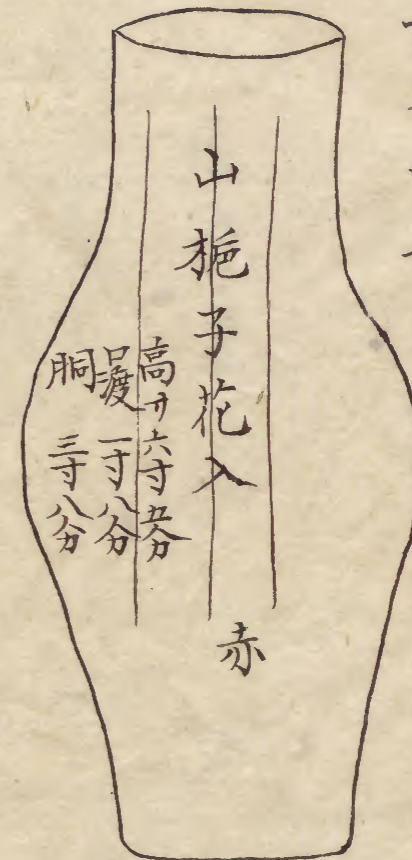 山梔子花入
高サ六寸五分
口渡一寸八分
胴 三寸八分
赤